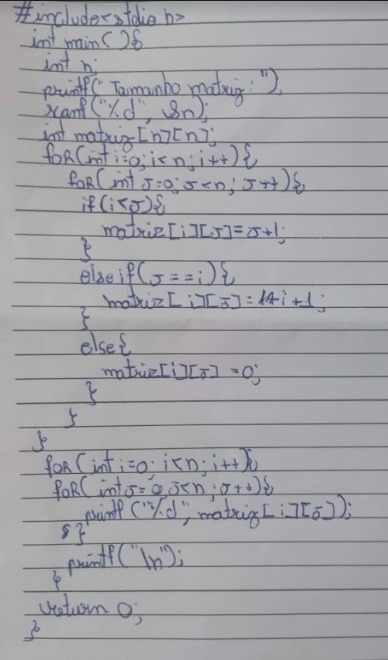 #include<stdio.h>
int main(){
int n;
printf("Tamanho matriz: ");
scanf("%d", &n);
int matriz[n][n];
for(int i=0;i<n;i++){
for(int j=0;j<n;j++){
if(i<j){
matriz[i][j]=j+1;
}
else if(j==i){
matriz[i][j]=i+1;
}
else{
matriz[i][j]=0;
}
}
}
for(int i=0;i<n;i++){
for(int j=0,j<n;j++){
printf("%d", matriz[i][j]);
}
printf("\n");
}
return 0;
}